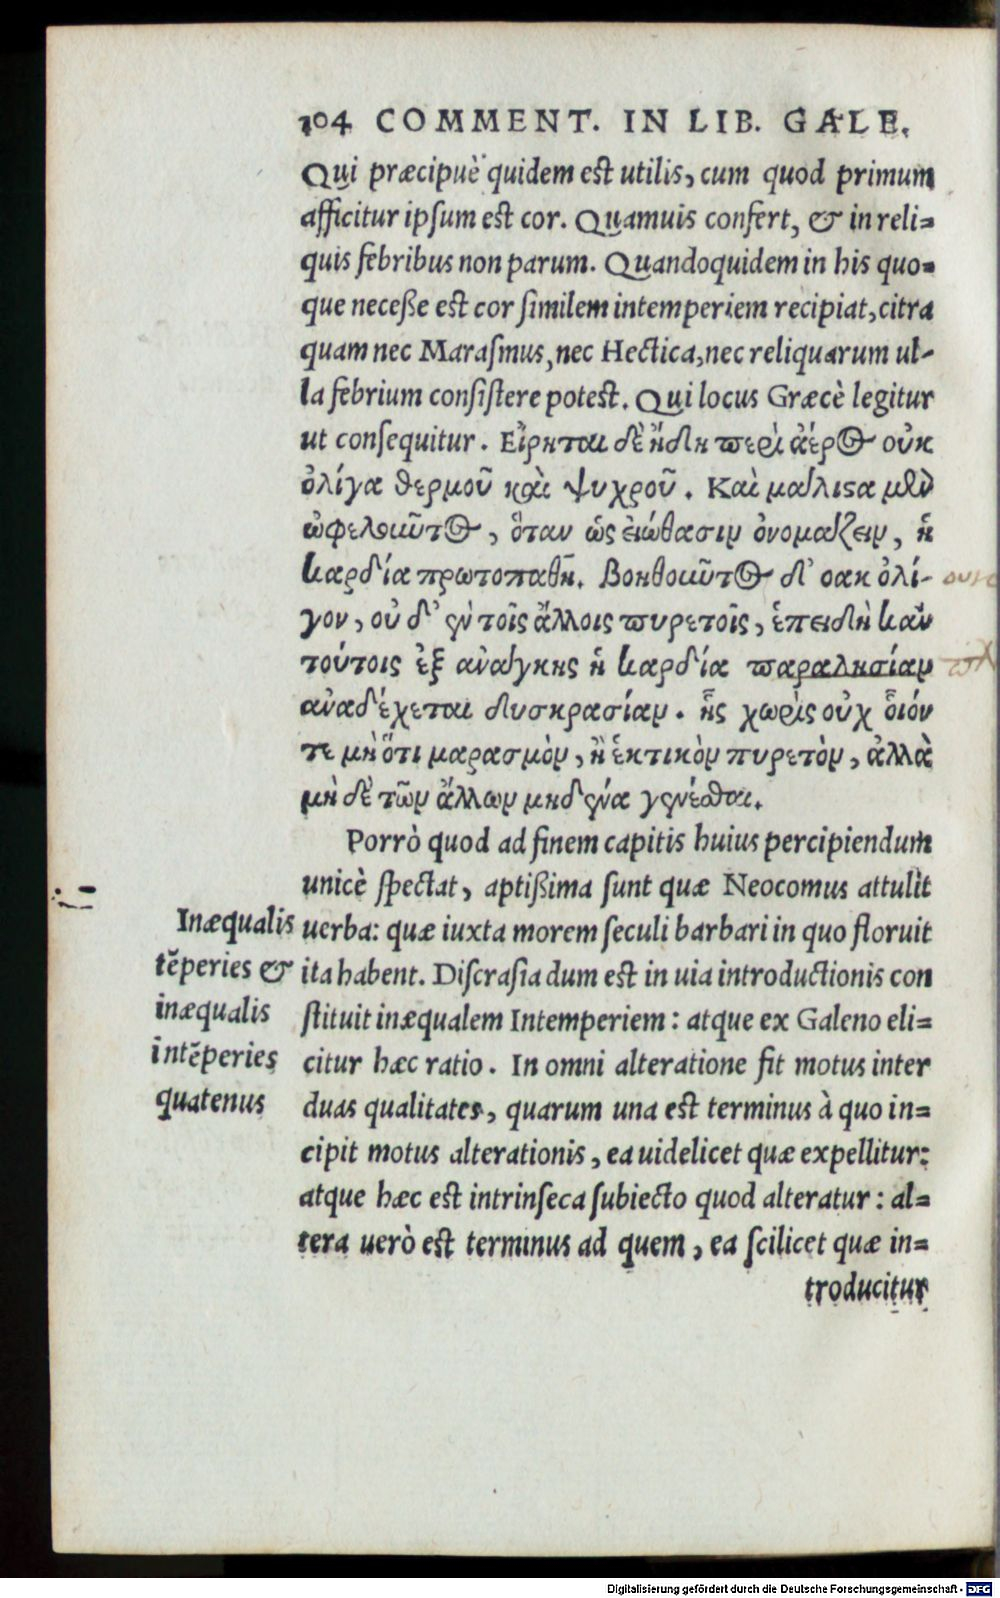 104 COMMENT. IN LIB. GALE.
Qui præcipuè quidem est utilis, cum quod primum
afficitur ipsum est cor. Quamuis confert, & in reli=
quis febribus non parum. Quandoquidem in his quo=
que neceße est cor similem intemperiem recipiat, citra
quam nec Marasmus, nec Hectica, nec reliquarum ul-
la febrium consistere potest. Qui locus Græcè legitur
ut consequitur. Εἴρηται δὲ ἤδη περὶ ἀέρος οὐκ
ὀλίγα θερμοῦ καὶ ψυχροῦ. Καὶ μάλιστα μὲν
ὠφελοιῦτος, ὅταν ὡς εἰώθασιν ὀνομάζειν, ἡ
καρδία πρωτοπαθῇ. Βοηθοιῦτος δ' οακ ὀλί-
γον, οὐ δ' ἐν τοῖς ἄλλοις πυρετοῖς, ἐπειδὴ κᾀν
τούτοις ἐξ ἀνάγκης ἡ καρδία παραλησίαν
ἀναδέχεται δυσκρασίαν. ἧς χωρὶς οὐχ οἷόν
τε μὴ ὅτι μαρασμὸν, ἢ ἑκτικὸν πυρετὸν, ἀλλὰ
μὴ δὲ τῶν ἄλλων μηδένα γενέσθαι.
Porrò quod ad finem capitis huius percipiendum
unicè spectat, aptißima sunt quæ Neocomus attulit
uerba: quæ iuxta morem seculi barbari in quo floruit
ita habent. Discrasia dum est in uia introductionis con
stituit inæqualem Intemperiem: atque ex Galeno eli=
citur hæc ratio. In omni alteratione fit motus inter
duas qualitates, quarum una est terminus à quo in=
cipit motus alterationis, ea uidelicet quæ expellitur:
atque hæc est intrinseca subiecto quod alteratur: al=
tera uerò est terminus ad quem, ea scilicet quæ in=
troducitur
Inæqualis
tēperies &
inæqualis
intēperies
quatenus
Digitalisierung gefördert durch die Deutsche Forschungsgemeinschaft - DFG